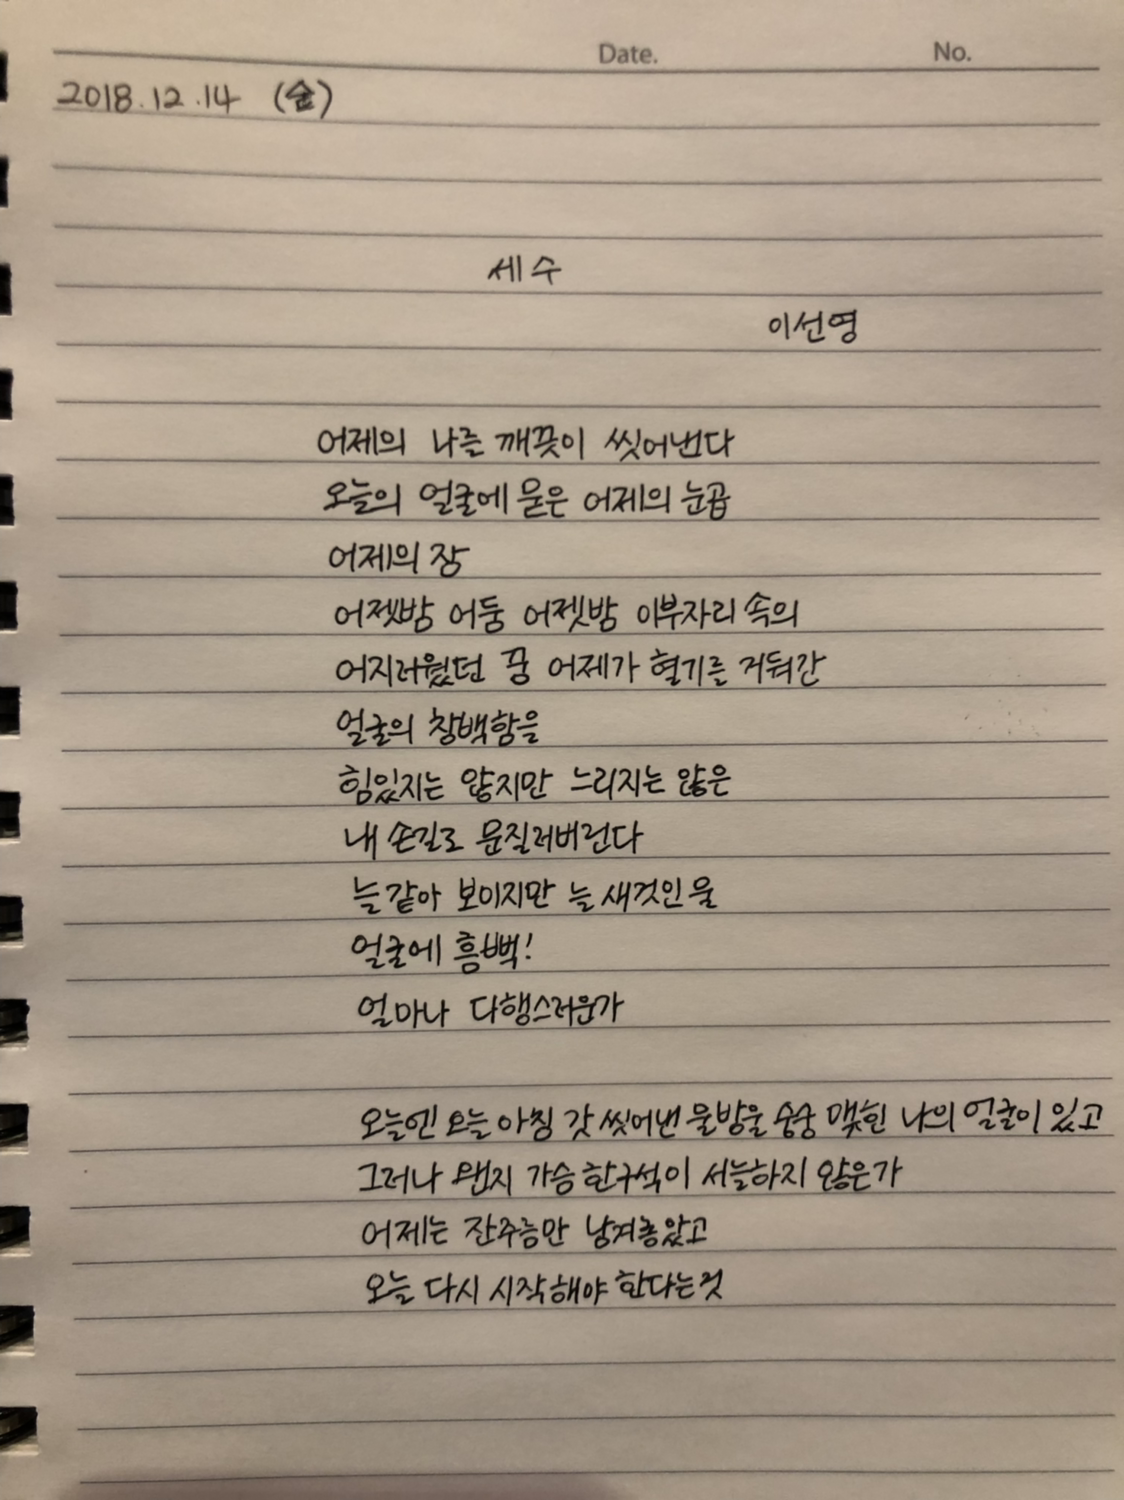 Date. No.
2018.12.14 (金)
세수
이선영
어제의 나를 깨끗이 씻어낸다
오늘의 얼굴에 묻은 어제의 눈곱
어제의 잠
어젯밤 어둠 어젯밤 이부자리 속의
어지러웠던 꿈 어제가 혈기를 거둬간
얼굴의 창백함을
힘있지는 않지만 느리지는 않은
내 손길로 문질러버린다
늘 같아 보이지만 늘 새것인 물
얼굴에 흠뻑!
얼마나 다행스러운가
오늘엔 오늘 아침 갓 씻어낸 물방울 숭숭 맺힌 나의 얼굴이 있고
그러나 왠지 가슴 한구석이 서늘하지 않은가
어제는 잔주름만 남겨놓았고
오늘 다시 시작해야 한다는 것